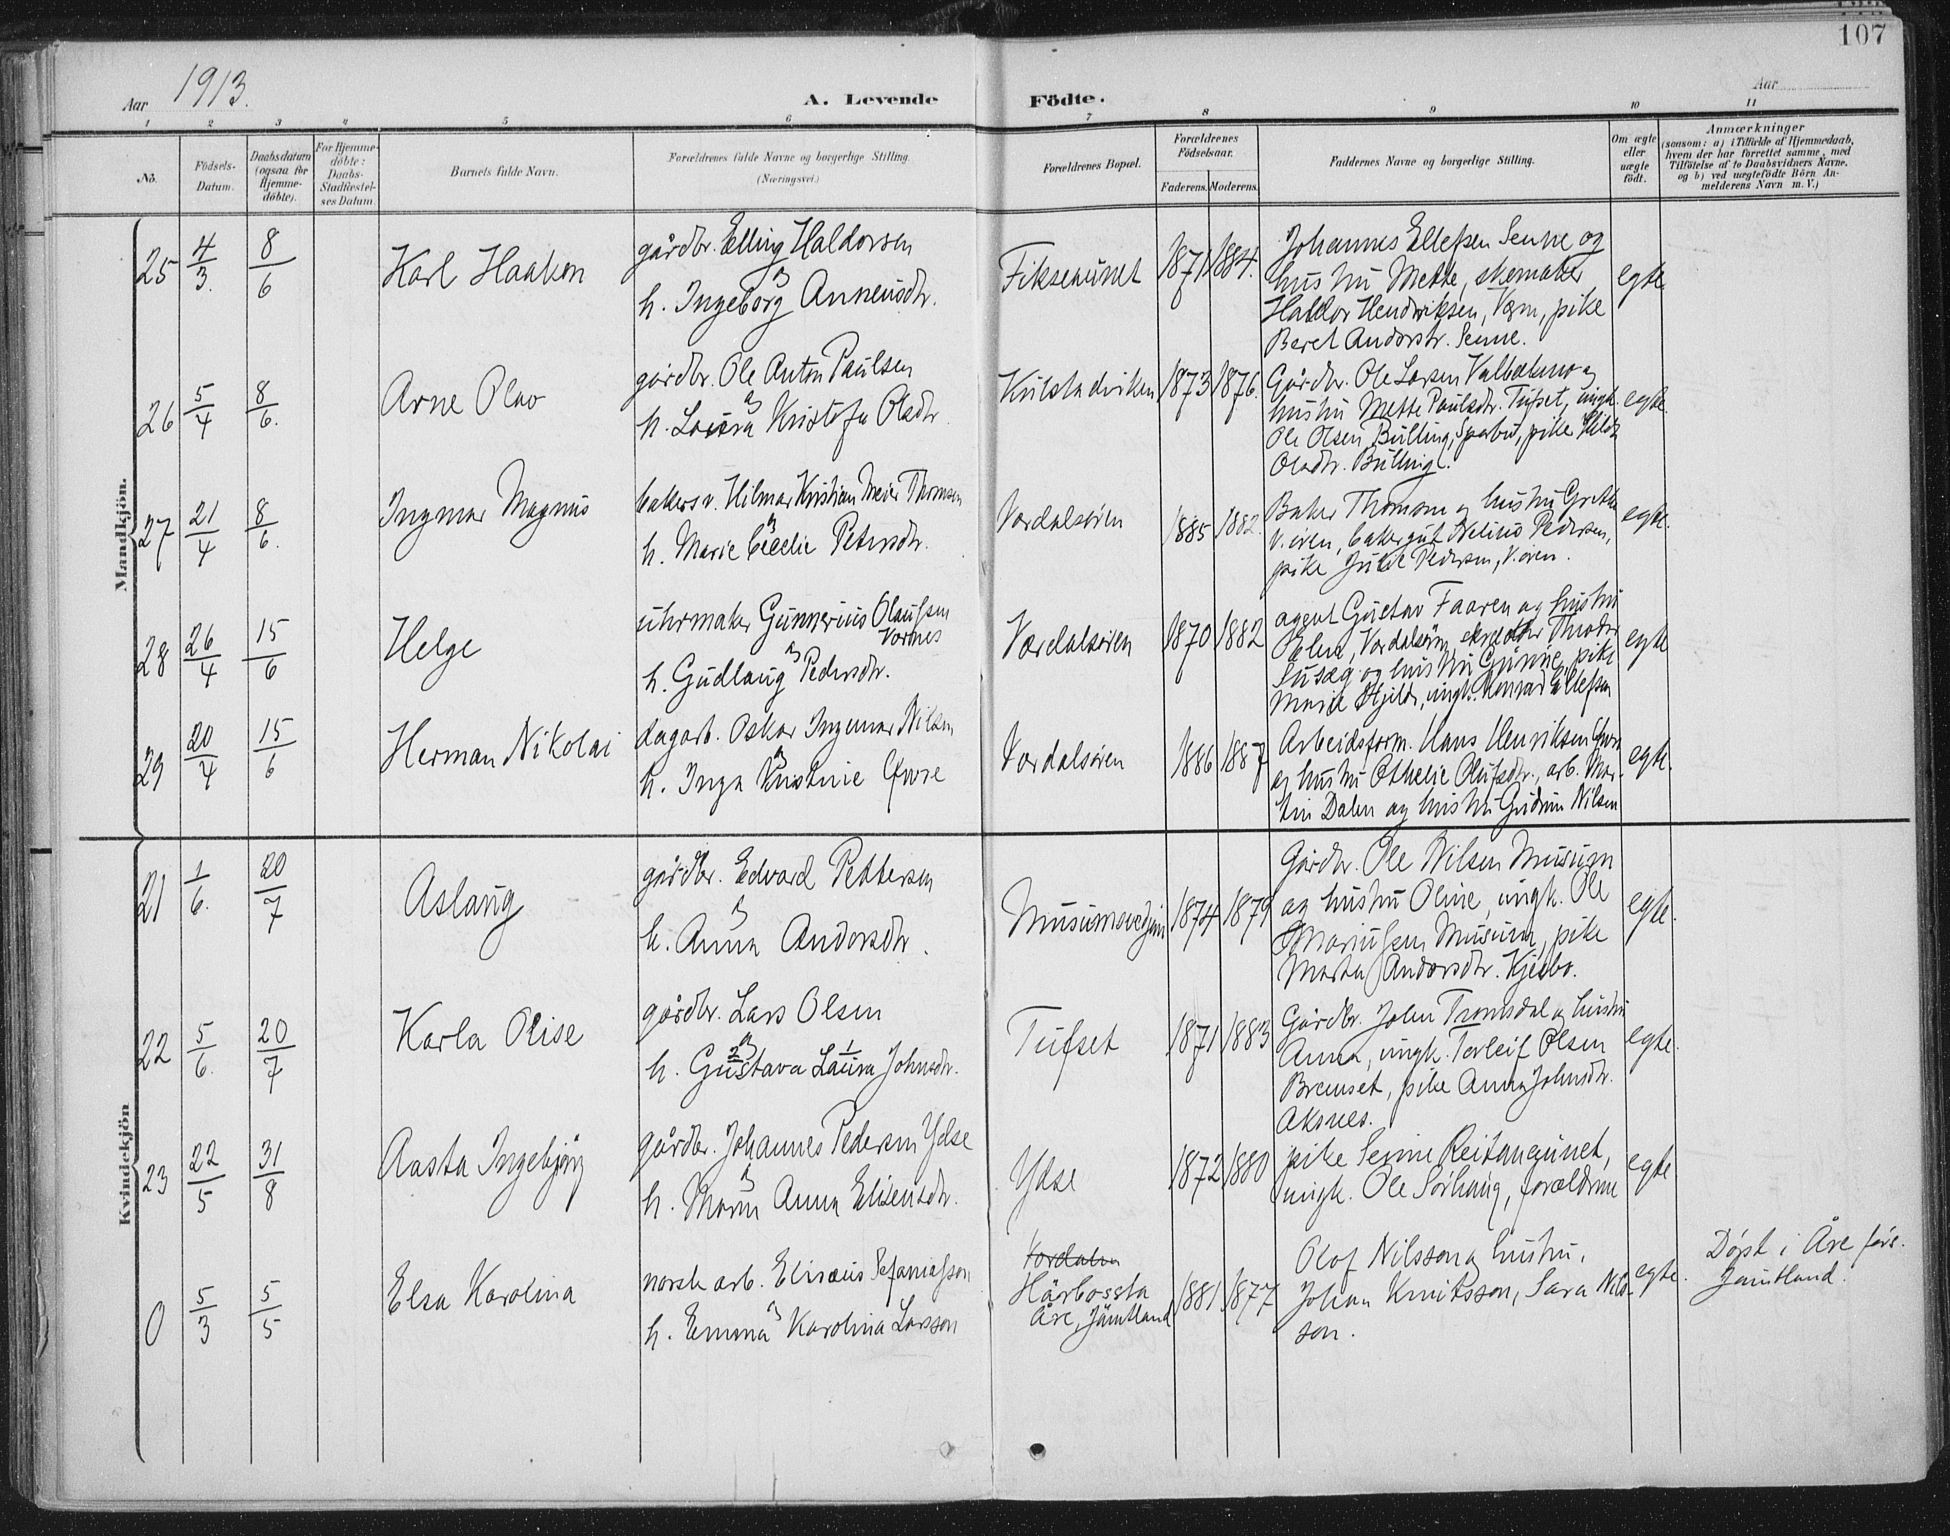 107
Aar 1913.
A. Levende Födte.
Aar
1 2 3 4 5 6 7 8 9 10 11
No.
Födsels-Datum.
Daabsdatum (ogsaa for Hjemme-döbte).
For Hjemme-döbte: Daabs-Stadfæstel-ses Datum.
Barnets fulde Navn.
Forældrenes fulde Navne og borgerlige Stilling. (Næringsvei.)
Forældrenes Bopæl.
Forældrenes Födselsaar.
Faderens. Moderens.
Faddernes Navne og borgerlige Stilling.
Om ægte eller uægte födt.
Anmærkninger
(saasom: a) i Tilfælde af Hjemmedaab,
hvem der har forrettet samme, med
Tilföielse af to Daabsvidners Navne.
og b) ved uægtefödte Börn An-
melderens Navn m. V.)
Mandkjön.
25 4/3. 8/6 Karl Haakon
gårdbr. Elling Haldorsen
og
h. Ingeborg Anneusdtr.
Fikseaunet 1871 1884.
Johannes Ellefsen Senne og
hustru Mette, skomaker
Haldor Hendriksen,Værn, pike
Beret Andorsdtr. Senne.
egte.
26 5/4 8/6. Arne Olav
gårdbr. Ole Anton Paulsen
og
h. Laura Kristofa Olsdtr.
Kulstadviken 1873 1876.
Gårdbr. Ole Larsen og
hustru Mette Paulsdtr. Tufset, ungk.
Ole Olsen Bulling, Sparbu, pike
Olsdtr. Bulling.
egte.
27 21/4 8/6. Ingmar Magnus
bakersv. Hilmar Kristian Meier Thomsen
og
h. Marie Cecelie Petersdtr.
Værdalsøren 1885 1882.
Baker Thomsen og hustru Grethe
V.øren, bakergut Pedersen,
pike Pedersen, V.øren.
egte.
28 26/4 15/6 Helge
uhrmaker Gunnerius Olaussen
Vornes
og
h. Gudlaug Pedersdtr.
Værdalsøren 1870 1882
agent Gustav Faaren og hustru
Elen, Værdalsøren, skredder Theodor
Suseg og hustru Gurine, pike
Marie ungk. Konrad Ellefsen
egte
29 20/4 15/6 Herman Nikolai
dagarb. Oskar Ingemar Nilsen
og
h. Inga Kristine Øvre
Værdalsøren 1886 1887
Arbeidsform. Hans Henriksen Øvre
og hustru Othelie Olufsdtr., arb. Mar-
tin Dalen og hustru Gudrun Nilsen
egte.
Kvindekjön
21 1/6. 20/7 Aslaug
gårdbr. Edvard Pettersen
og
h. Anna Andorsdtr.
Musumsvedjan 1874 1879
Gårdbr. Ole Nilsen Musum
og hustru Oline, ungk. Ole
Mariussen Musum, pike
Marta Andorsdtr. Kjesbo.
egte.
22 5/6. 20/7 Karla Olise
gårdbr. Lars Olsen
og
h. Gustava Laura Johnsdtr.
Tufset 1871 1883
Gårdbr. John Tromsdal og hustru
Anna, ungk. Torleif Olsen
Breuset, pike Anna Johnsdtr.
Aksnes.
egte.
23 22/5 31/8 Aasta Ingebjørg
gårdbr. Johannes Pedersen Ydse
og
h. Maren Anna Elisensdtr.
Ydse 1872 1880
pike Senine Reitanaunet,
ungk. Ole Sørhaug, forældrene
egte.
0 5/3 5/5 Elsa Karolina
norsk arb. Eliseus Sefaniasson
og
h. Emma Karolina Larsson
Værdalen
Hårbossta
Åre, Jämtland
1881 1877
Olof Nilsson og hustru,
Johan Knutsson, Sara Nils-
son.
egte.
Døpt i Åre førs.
Jämtland.